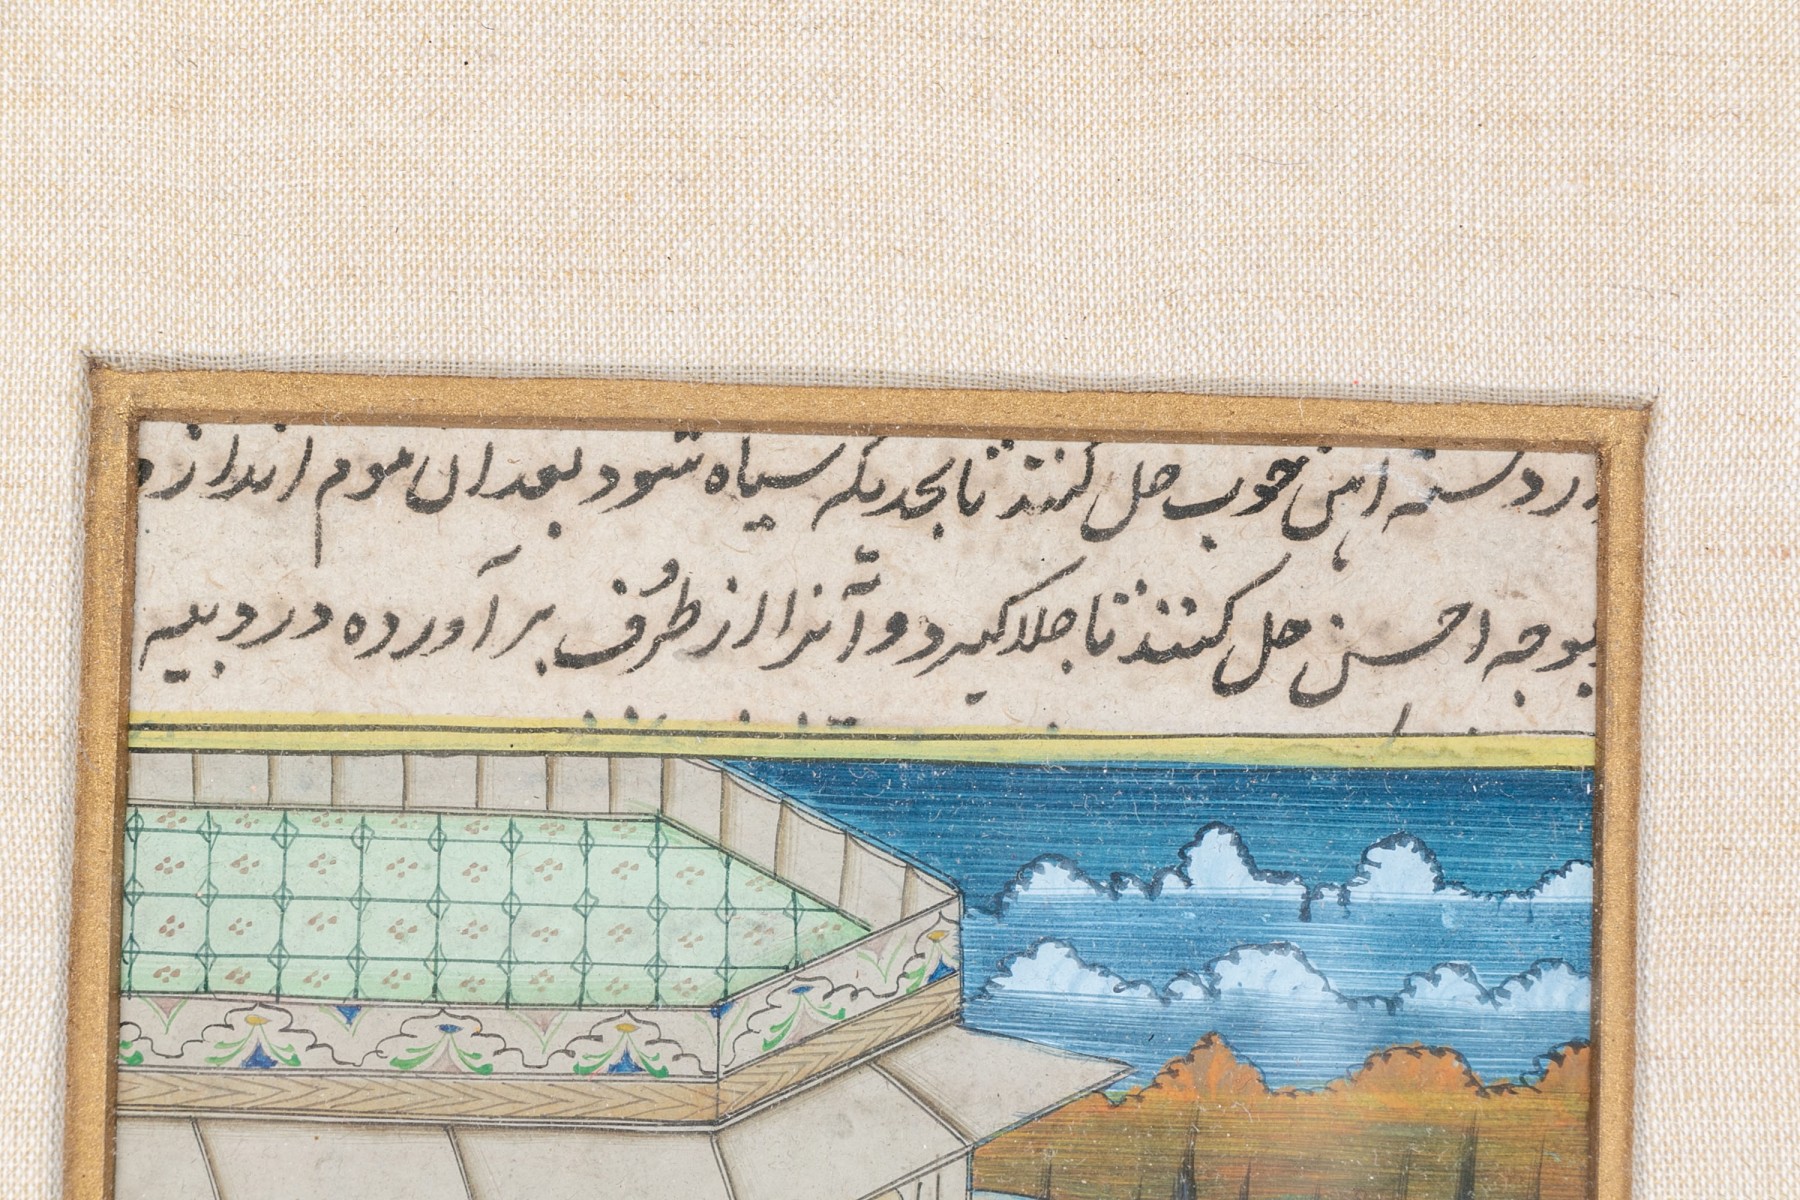 در دسته آهنی خوب حل کنند تا بحدیکه سیاه شود بعد ازان موم اندازد
بوجه احسن حل کنند تا جلا گیرد و آنرا از ظرف برآورده در دبیه